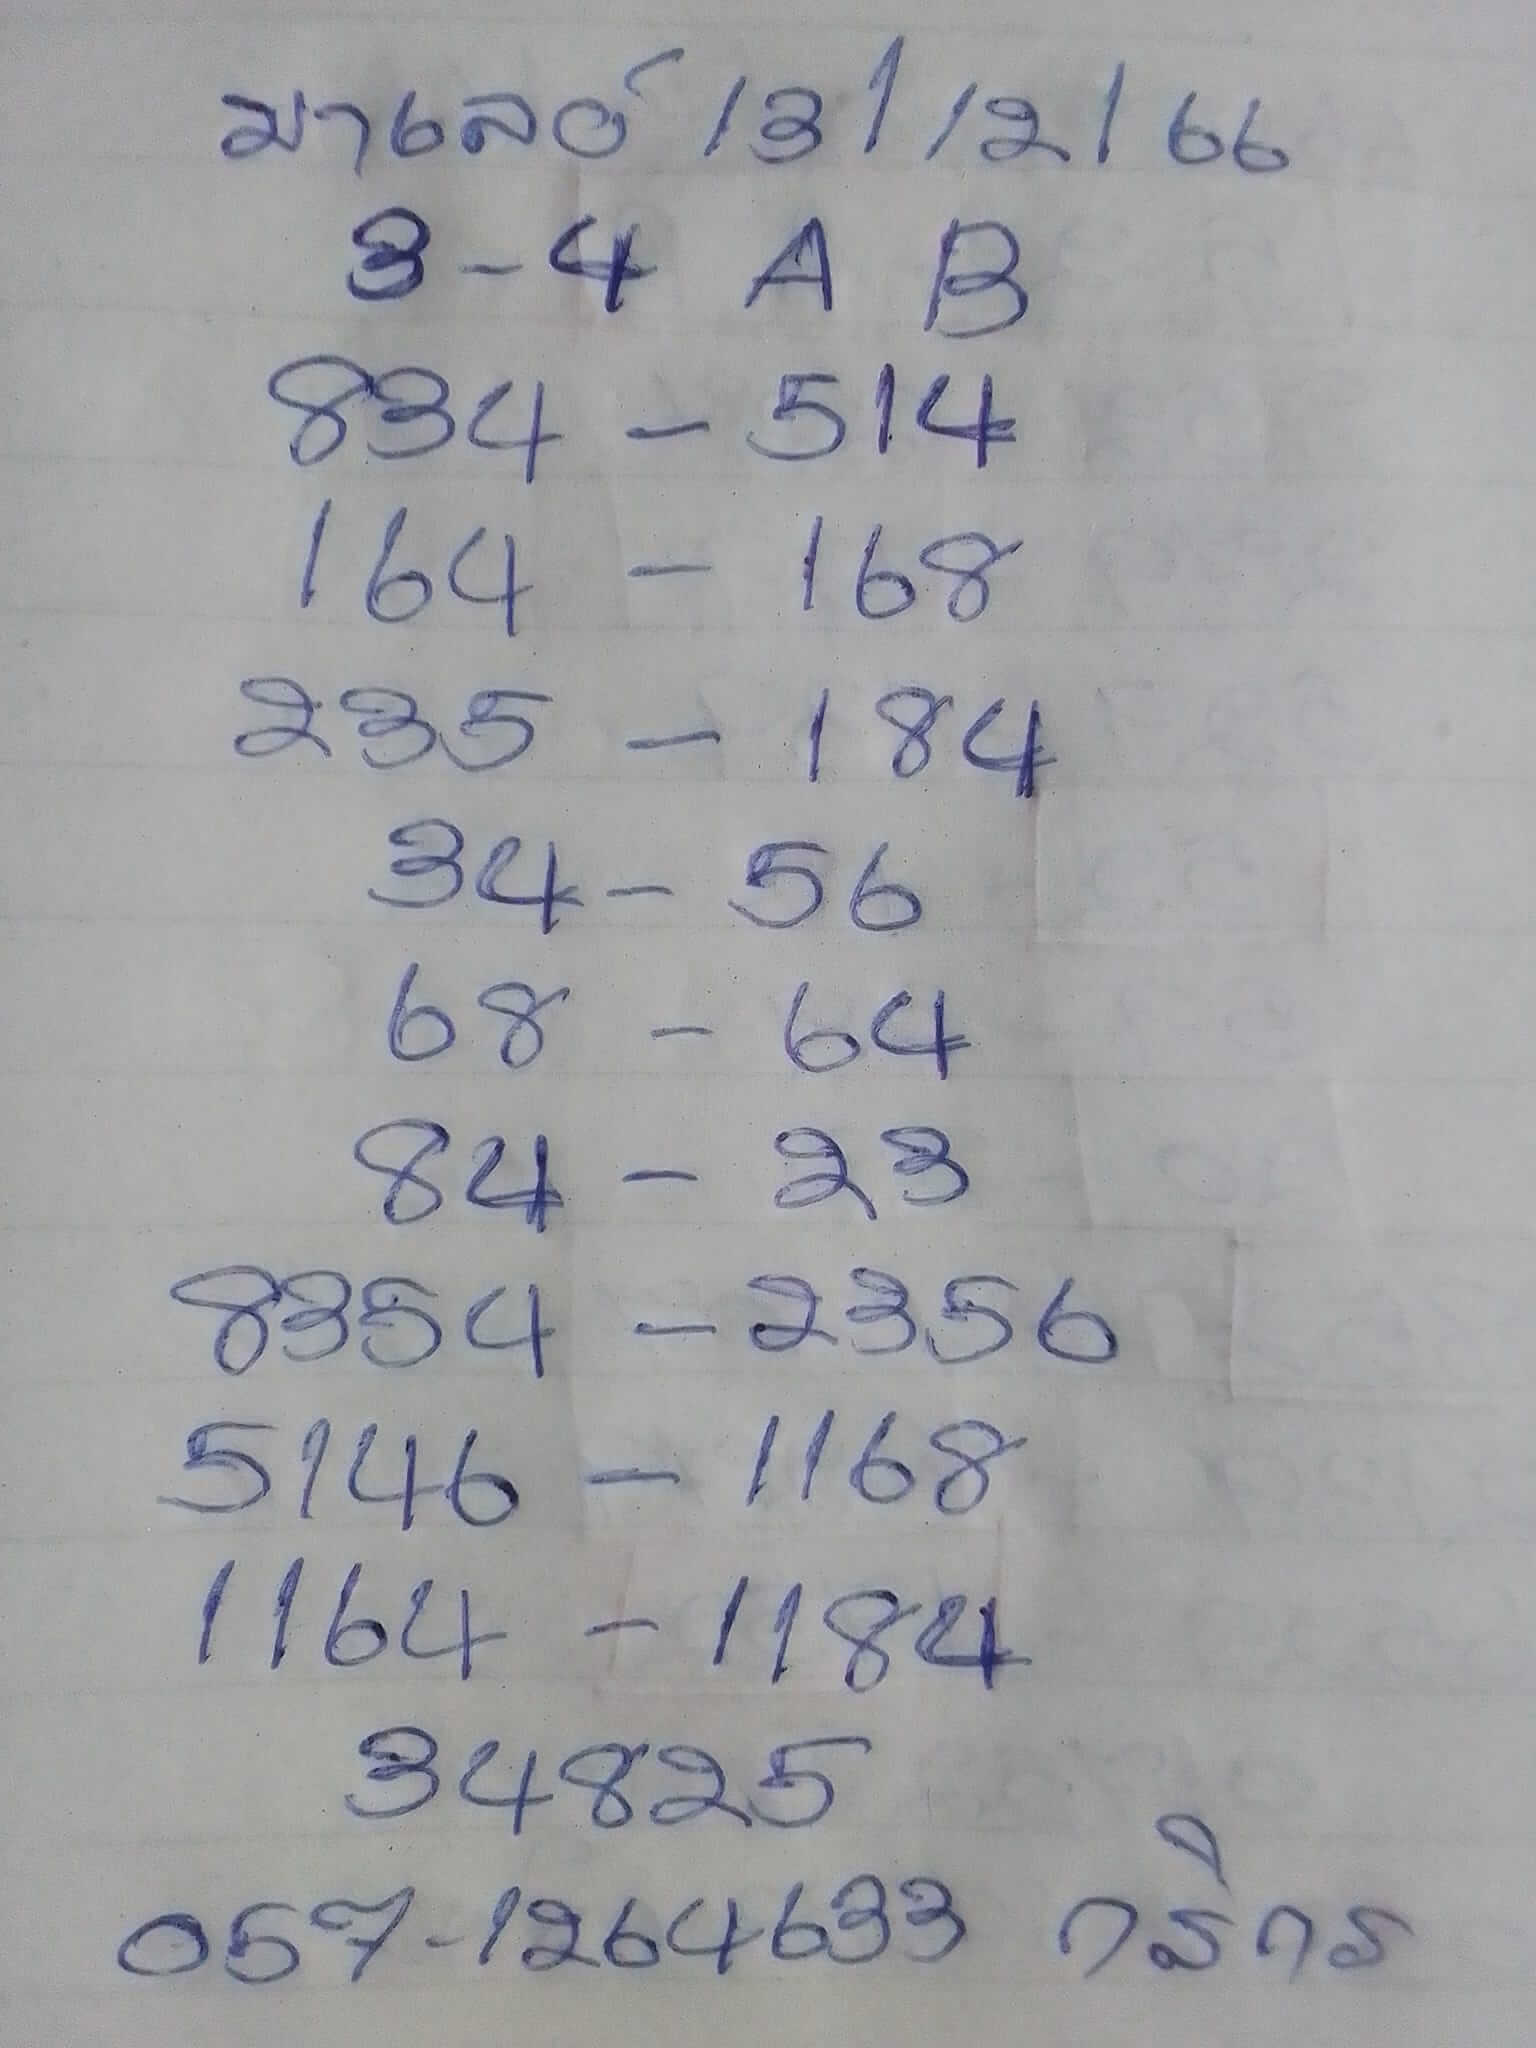 มาเลย์ 13/12/66
3-4 A B
834-514
164-168
235-184
34-56
68-64
84-23
8354-2356
5146-1168
1164-1184
34825
057-1264633